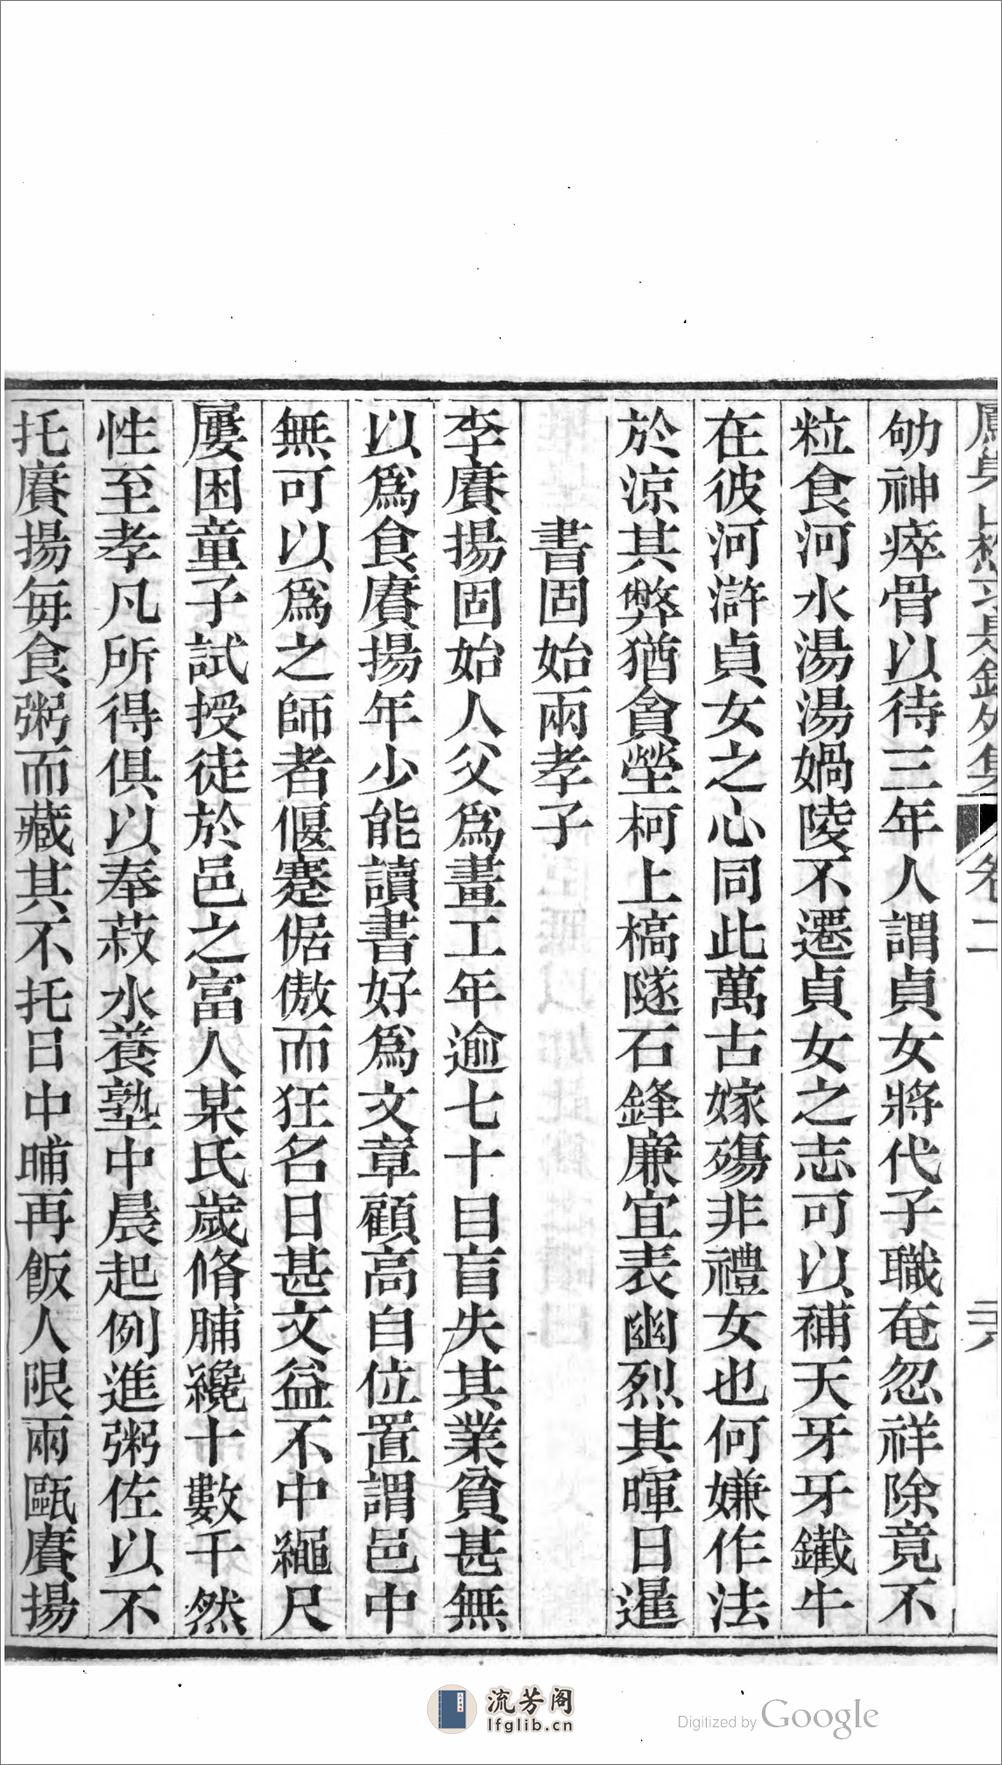 卷二
劬神瘁骨以待三年人謂貞女將代子職奄忽祥除竟不
粒食河水湯湯媧陵不遷貞女之志可以補天牙牙鐵牛
在彼河滸貞女之心同此萬古嫁殤非禮女也何嫌作法
於涼其弊猶貪塋柯上槁隧石鋒廉宜表幽烈其暉日暹
書固始兩孝子
李賡揚固始人父為畫工年逾七十目盲失其業貧甚無
以為食賡揚年少能讀書好為文章顧高自位置謂邑中
無可以為之師者偃蹇倨傲而狂名日甚文益不中繩尺
屢困童子試授徒於邑之富人某氏歲脩脯纔十數千然
性至孝凡所得俱以奉菽水養塾中晨起例進粥佐以不
托賡揚每食粥而藏其不托日中晡再飯人限兩甌賡揚
流芳阁
lfglib.cn
Digitized by Google